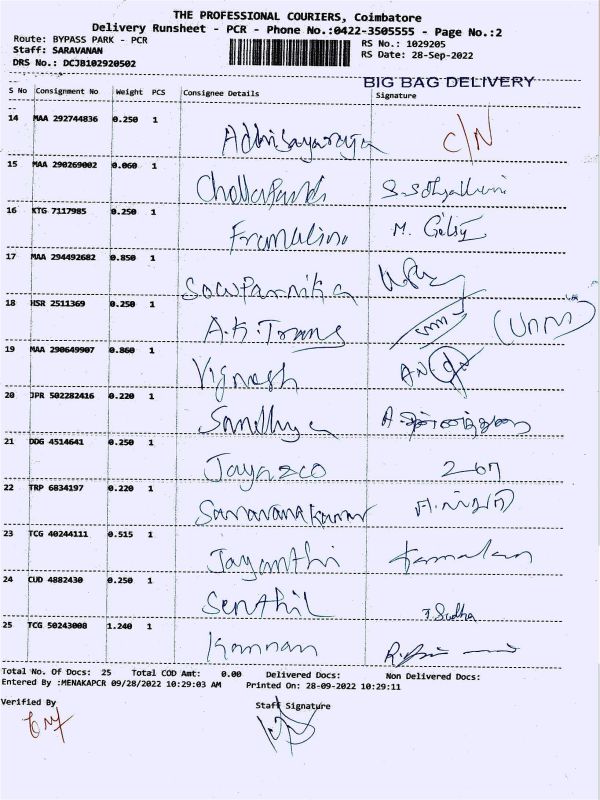 THE PROFESSIONAL COURIERS, Coimbatore
Delivery Runsheet - PCR - Phone No.:0422-3505555 - Page No.:2
Route: BYPASS PARK - PCR RS No.: 1029205
Staff: SARAVANAN RS Date: 28-Sep-2022
DRS No.: DCJB102920502
BIG BAG DELIVERY
S No Consignment No Weight PCS Consignee Details Signature
14 MAA 292744836 0.250 1
C/N
15 MAA 290269002 0.060 1
16 KTG 7117985 0.250 1
M.
17 MAA 294492682 0.850 1
Sowparnika
18 HSR 2511369 0.250 1
A.K. Trans
19 MAA 290649907 0.860 1
Vignesh
20 JPR 502282416 0.220 1
Sandhya
21 DDG 4514641 0.250 1
22 TRP 6834197 0.220 1
Saravanakumar
23 TCG 40244111 0.515 1
Jayanthi
24 CUD 4882430 0.250 1
Senthil Sudha
25 TCG 50243008 1.240 1
Kannan
Total No. Of Docs: 25 Total COD Amt: 0.00 Delivered Docs: Non Delivered Docs:
Entered By :MENAKAPCR 09/28/2022 10:29:03 AM Printed On: 28-09-2022 10:29:11
Verified By Staff Signature